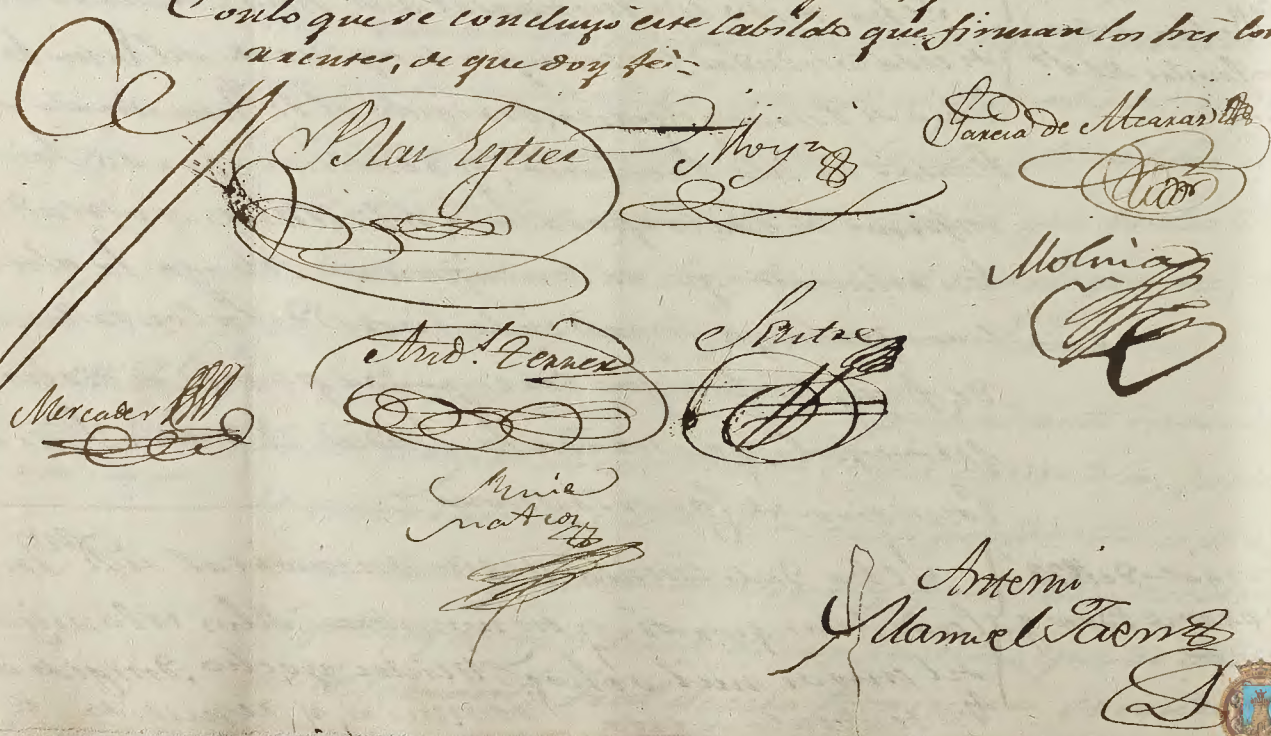 Con lo que se concluyó este Cabildo que firman los Sres Con
rrentes, de que doy fé=
Blas
Moya
Garcia de Alcaraz
Molina
And.s Ferrer
Mercader
Ruiz
Mateos
Antemi
Manuel Jaen